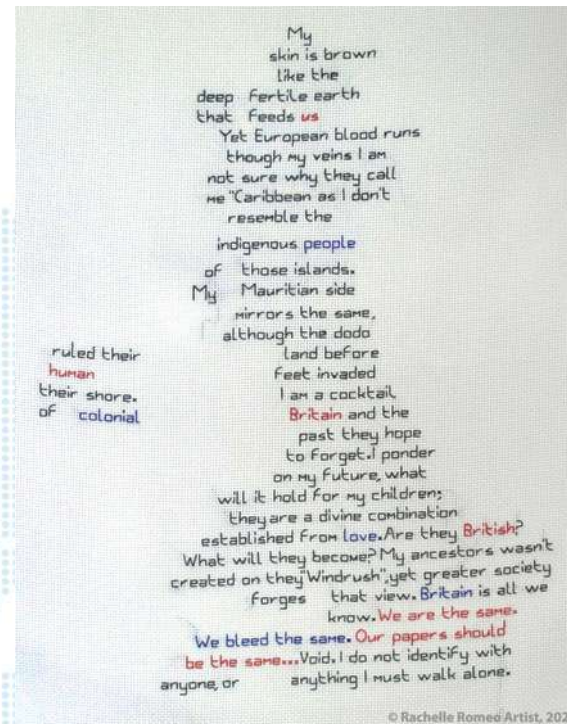 My
skin is brown
like the
deep fertile earth
that feeds us
Yet European blood runs
though my veins I am
not sure why they call
me "Caribbean as I don't
resemble the
indigenous people
of those islands.
My Mauritian side
mirrors the same,
although the dodo
ruled their land before
human feet invaded
their shore. I am a cocktail
of colonial Britain and the
past they hope
to forget.I ponder
on my future, what
will it hold for my children;
they are a divine combination
established from love.Are they British?
What will they become? My ancestors wasn't
created on they"Windrush",yet greater society
forges that view. Britain is all we
know. We are the same.
We bleed the same. Our papers should
be the same...Void. I do not identify with
anyone, or anything I must walk alone.
© Rachelle Romeo Artist, 202